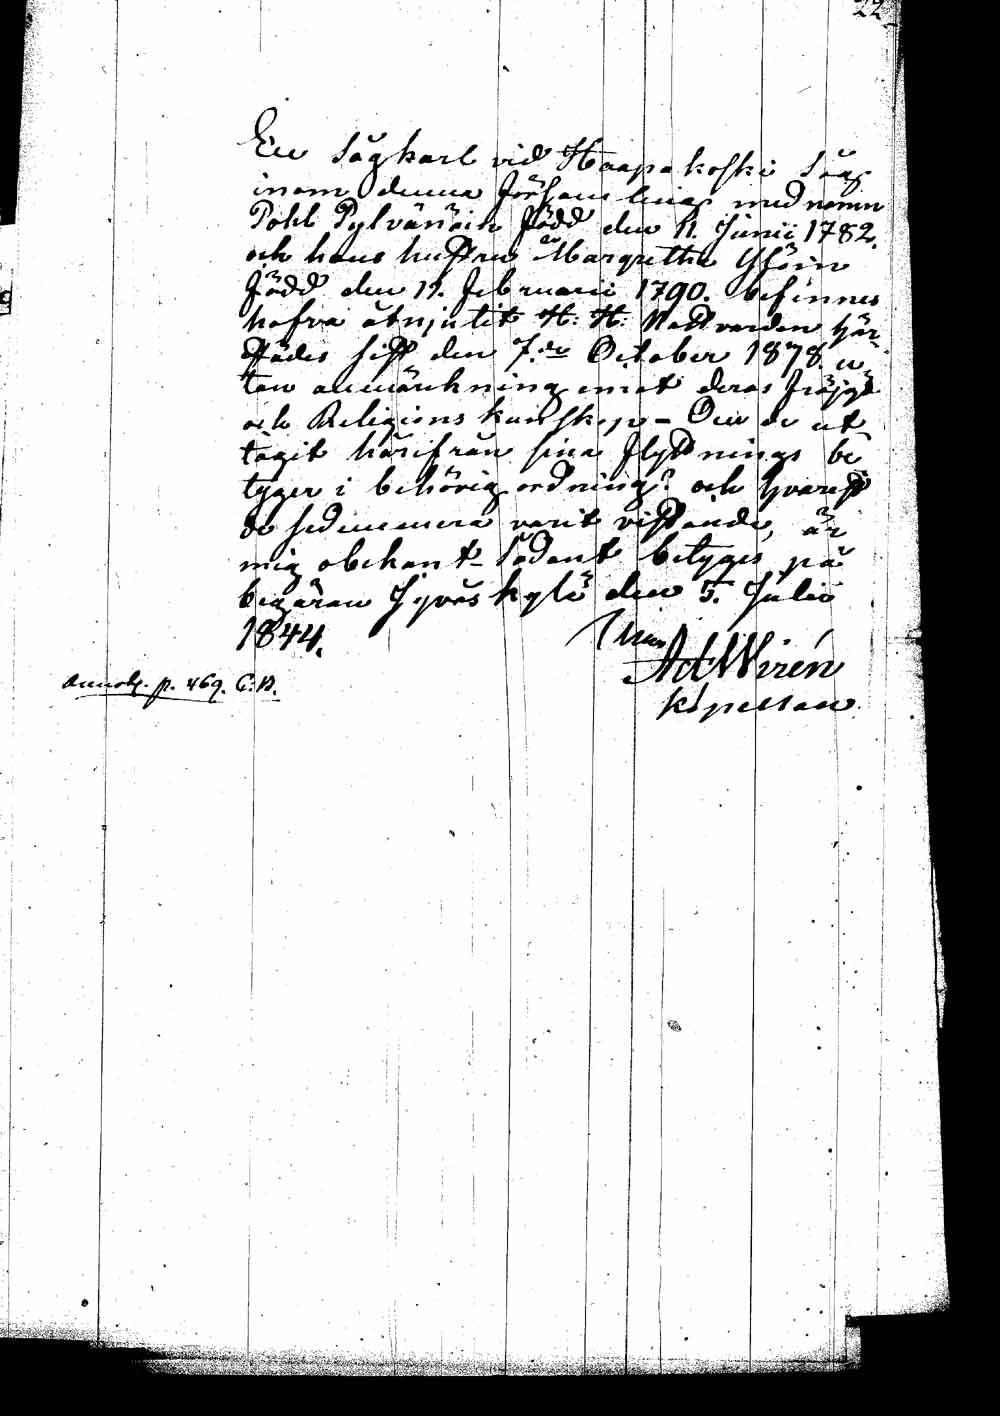 22
En Sågkarl vid Haapakoski Såg
inom denna Församling med namn
Påhl Pylvänäin född den 11. Junii 1782.
och hans hustru Margretha
född den 19. Februarii 1790. befinnes
hafva åtnjutit H: H: Nattvarden här-
städes sist den 7.de October 1878. u-
tan anmärkning emot deras fräjgd
och Religions kunskap - Om de ut
tagit härifrån sina flyttnings be
tyger i behörig ordning? och hvarest
de sedermera varit vistande, är
mig obekant - Sådant betyges på
begäran Jyväskylä den 5. Julii
1844.
Ad Wirén
Kapellan.
Annot. p. 469. C.B.